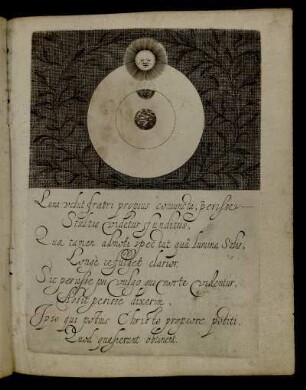 Luna velut fratri propius coniuncta, perisse
Stultis videtur funditus,
Quæ tamen admoti spectat quà lumina Solis,
Longè refulget clarior.
Sic perijsse pij vulgo cum morte videntur,
Absit perisse dixerim.
Ipso qui potius Christo propiore potiti,
Quod quæsierunt obtinent.